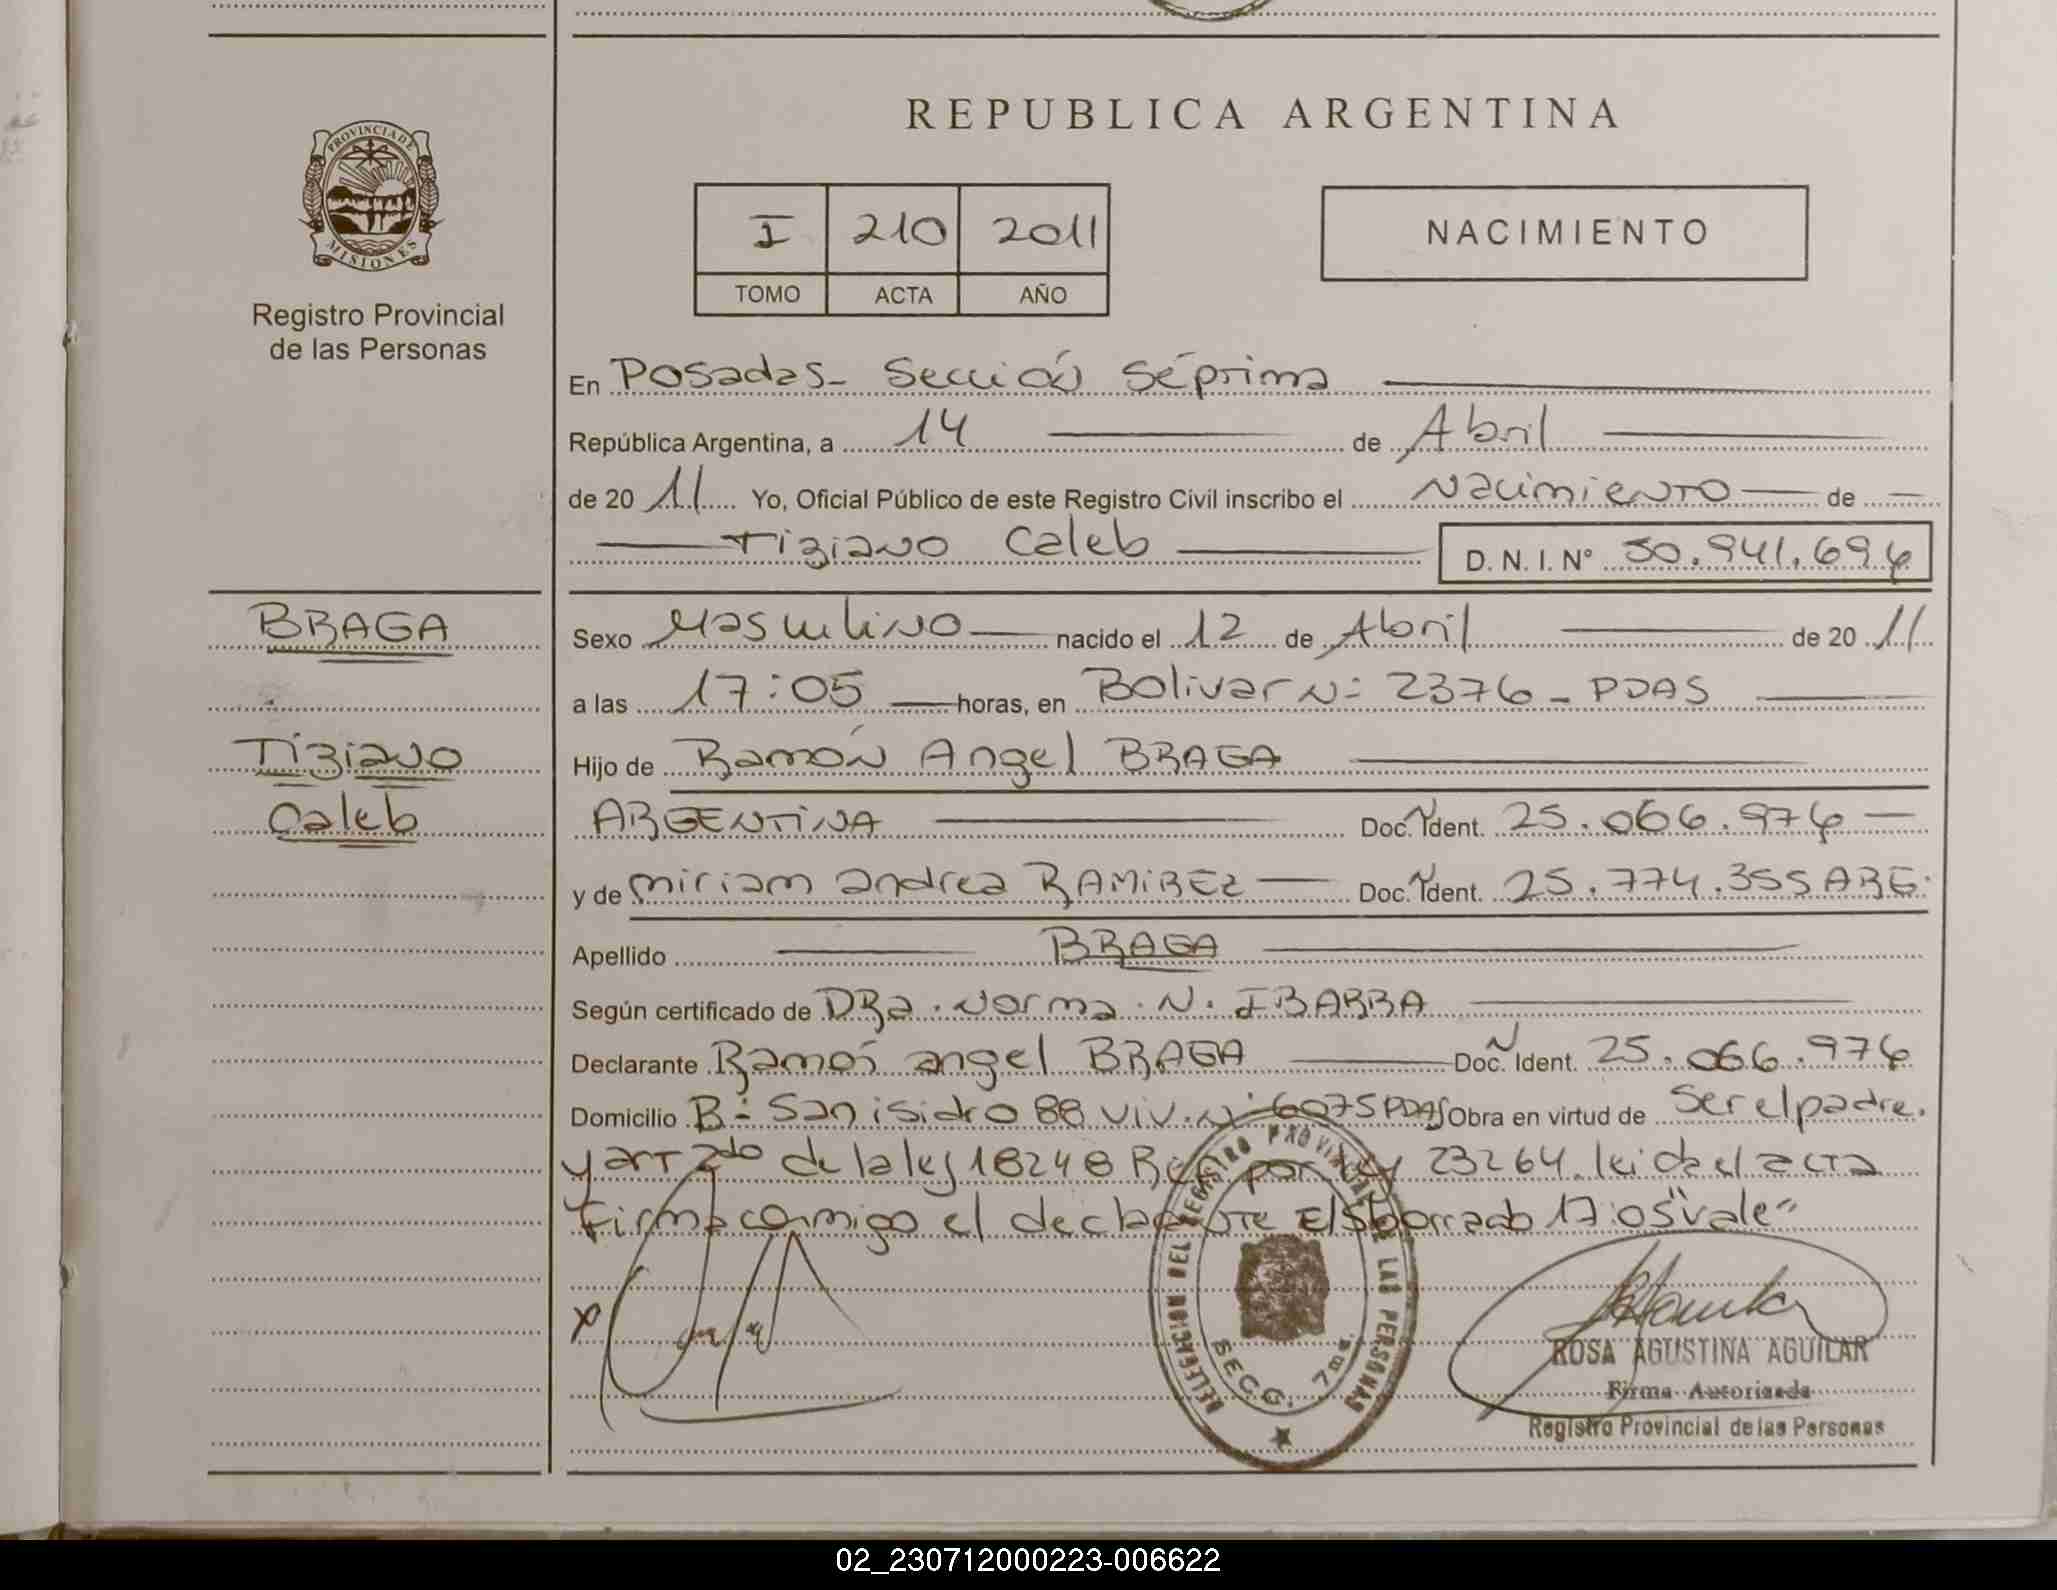 REPUBLICA ARGENTINA
PROVINCIA DE MISIONES
Registro Provincial
de las Personas
I 210 2011
TOMO ACTA AÑO
NACIMIENTO
En Posadas - Sección Séptima
República Argentina, a 14 de Abril
de 2011 Yo, Oficial Público de este Registro Civil inscribo el Nacimiento de
Tiziano Caleb D. N. I. Nº 50.941.696
BRAGA
Tiziano
Caleb
Sexo Masculino nacido el 12 de Abril de 2011
a las 17:05 horas, en Bolivar N: 2376 - PDAS
Hijo de Ramón Angel BRAGA
ARGENTINA Doc. Ident. 25.066.976
y de miriam andrea RAMIREZ Doc. Ident. 25.774.355 ARG.
Apellido BRAGA
Según certificado de DRa. Norma. N. IBARRA
Declarante Ramón angel BRAGA Doc. Ident. 25.066.976
Domicilio B: San isidro 88 viv. N: 6075 PDAS Obra en virtud de Ser el padre.
y art 2do de la ley 18248 por ley 23264. leida el acta
Firma conmigo el declarante El Sborrado 17:05 "vale"
X
DELEGACION DEL REGISTRO PROVINCIAL DE LAS PERSONAS
SECC. 7ma.
ROSA AGUSTINA AGUILAR
Firma Autorizada
Registro Provincial de las Personas
02_230712000223-006622